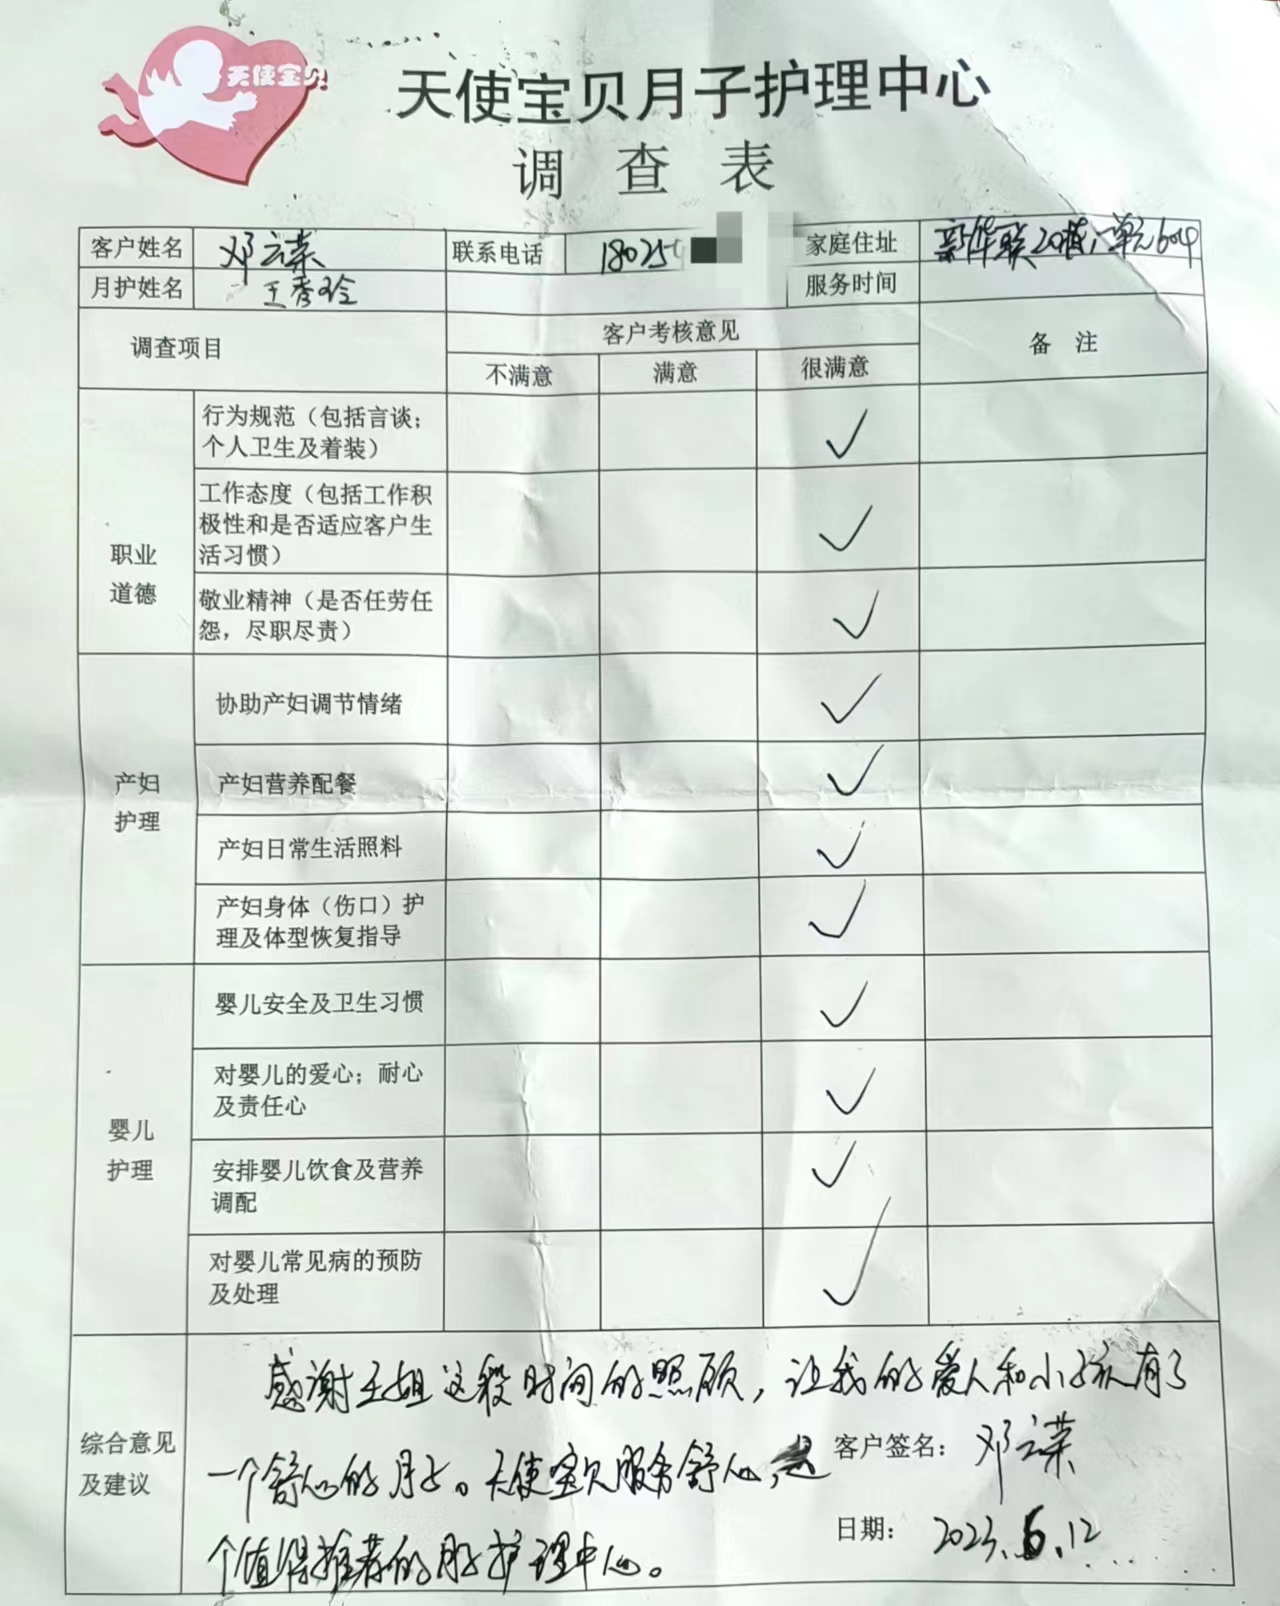 天使宝贝
天使宝贝月子护理中心
调查表
客户姓名 邓云荣 联系电话 18025 家庭住址 新华联20栋1单元604
月护姓名 王秀玲 服务时间
调查项目 客户考核意见 备 注
不满意 满意 很满意
职业
道德
行为规范（包括言谈；
个人卫生及着装）
工作态度（包括工作积
极性和是否适应客户生
活习惯）
敬业精神（是否任劳任
怨，尽职尽责）
产妇
护理
协助产妇调节情绪
产妇营养配餐
产妇日常生活照料
产妇身体（伤口）护
理及体型恢复指导
婴儿
护理
婴儿安全及卫生习惯
对婴儿的爱心；耐心
及责任心
安排婴儿饮食及营养
调配
对婴儿常见病的预防
及处理
综合意见
及建议
感谢王姐这段时间的照顾，让我的爱人和小孩有了
一个舒心的月子。天使宝贝服务舒心，是
个值得推荐的月子护理中心。
客户签名：邓云荣
日期：2023.6.12